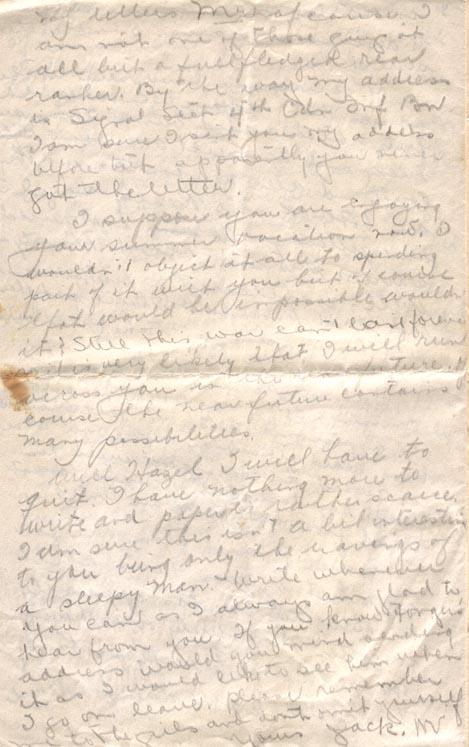 my letters Mrs of course. I
am not one of those guys at
all but a full fledged rear
ranker. By the way my address
is Signal Sect. 4th Cdn Inf Bn
I am sure I sent you my address
before but apparently you never
got the letter.
I suppose you are enjoying
your summer vacation now. I
wouldn't object at all to spending
part of it with you but of course
that would be impossible wouldn't
it? Still this war can't last forever
it is very likely that I will run
across you in the near future of
course the near future contains
many possibilities.
Well Hazel I will have to
quit. I have nothing more to
write and paper is rather scarce.
I am sure this isn't a bit interesting
to you being only the ravings of
a sleepy man. Write whenever
you can as I always am glad to
hear from you. If you know
address would you mind sending
it as I would like to see him when
I go on leave. Please remember
me to the girls and don't omit yourself
Yours Jack.